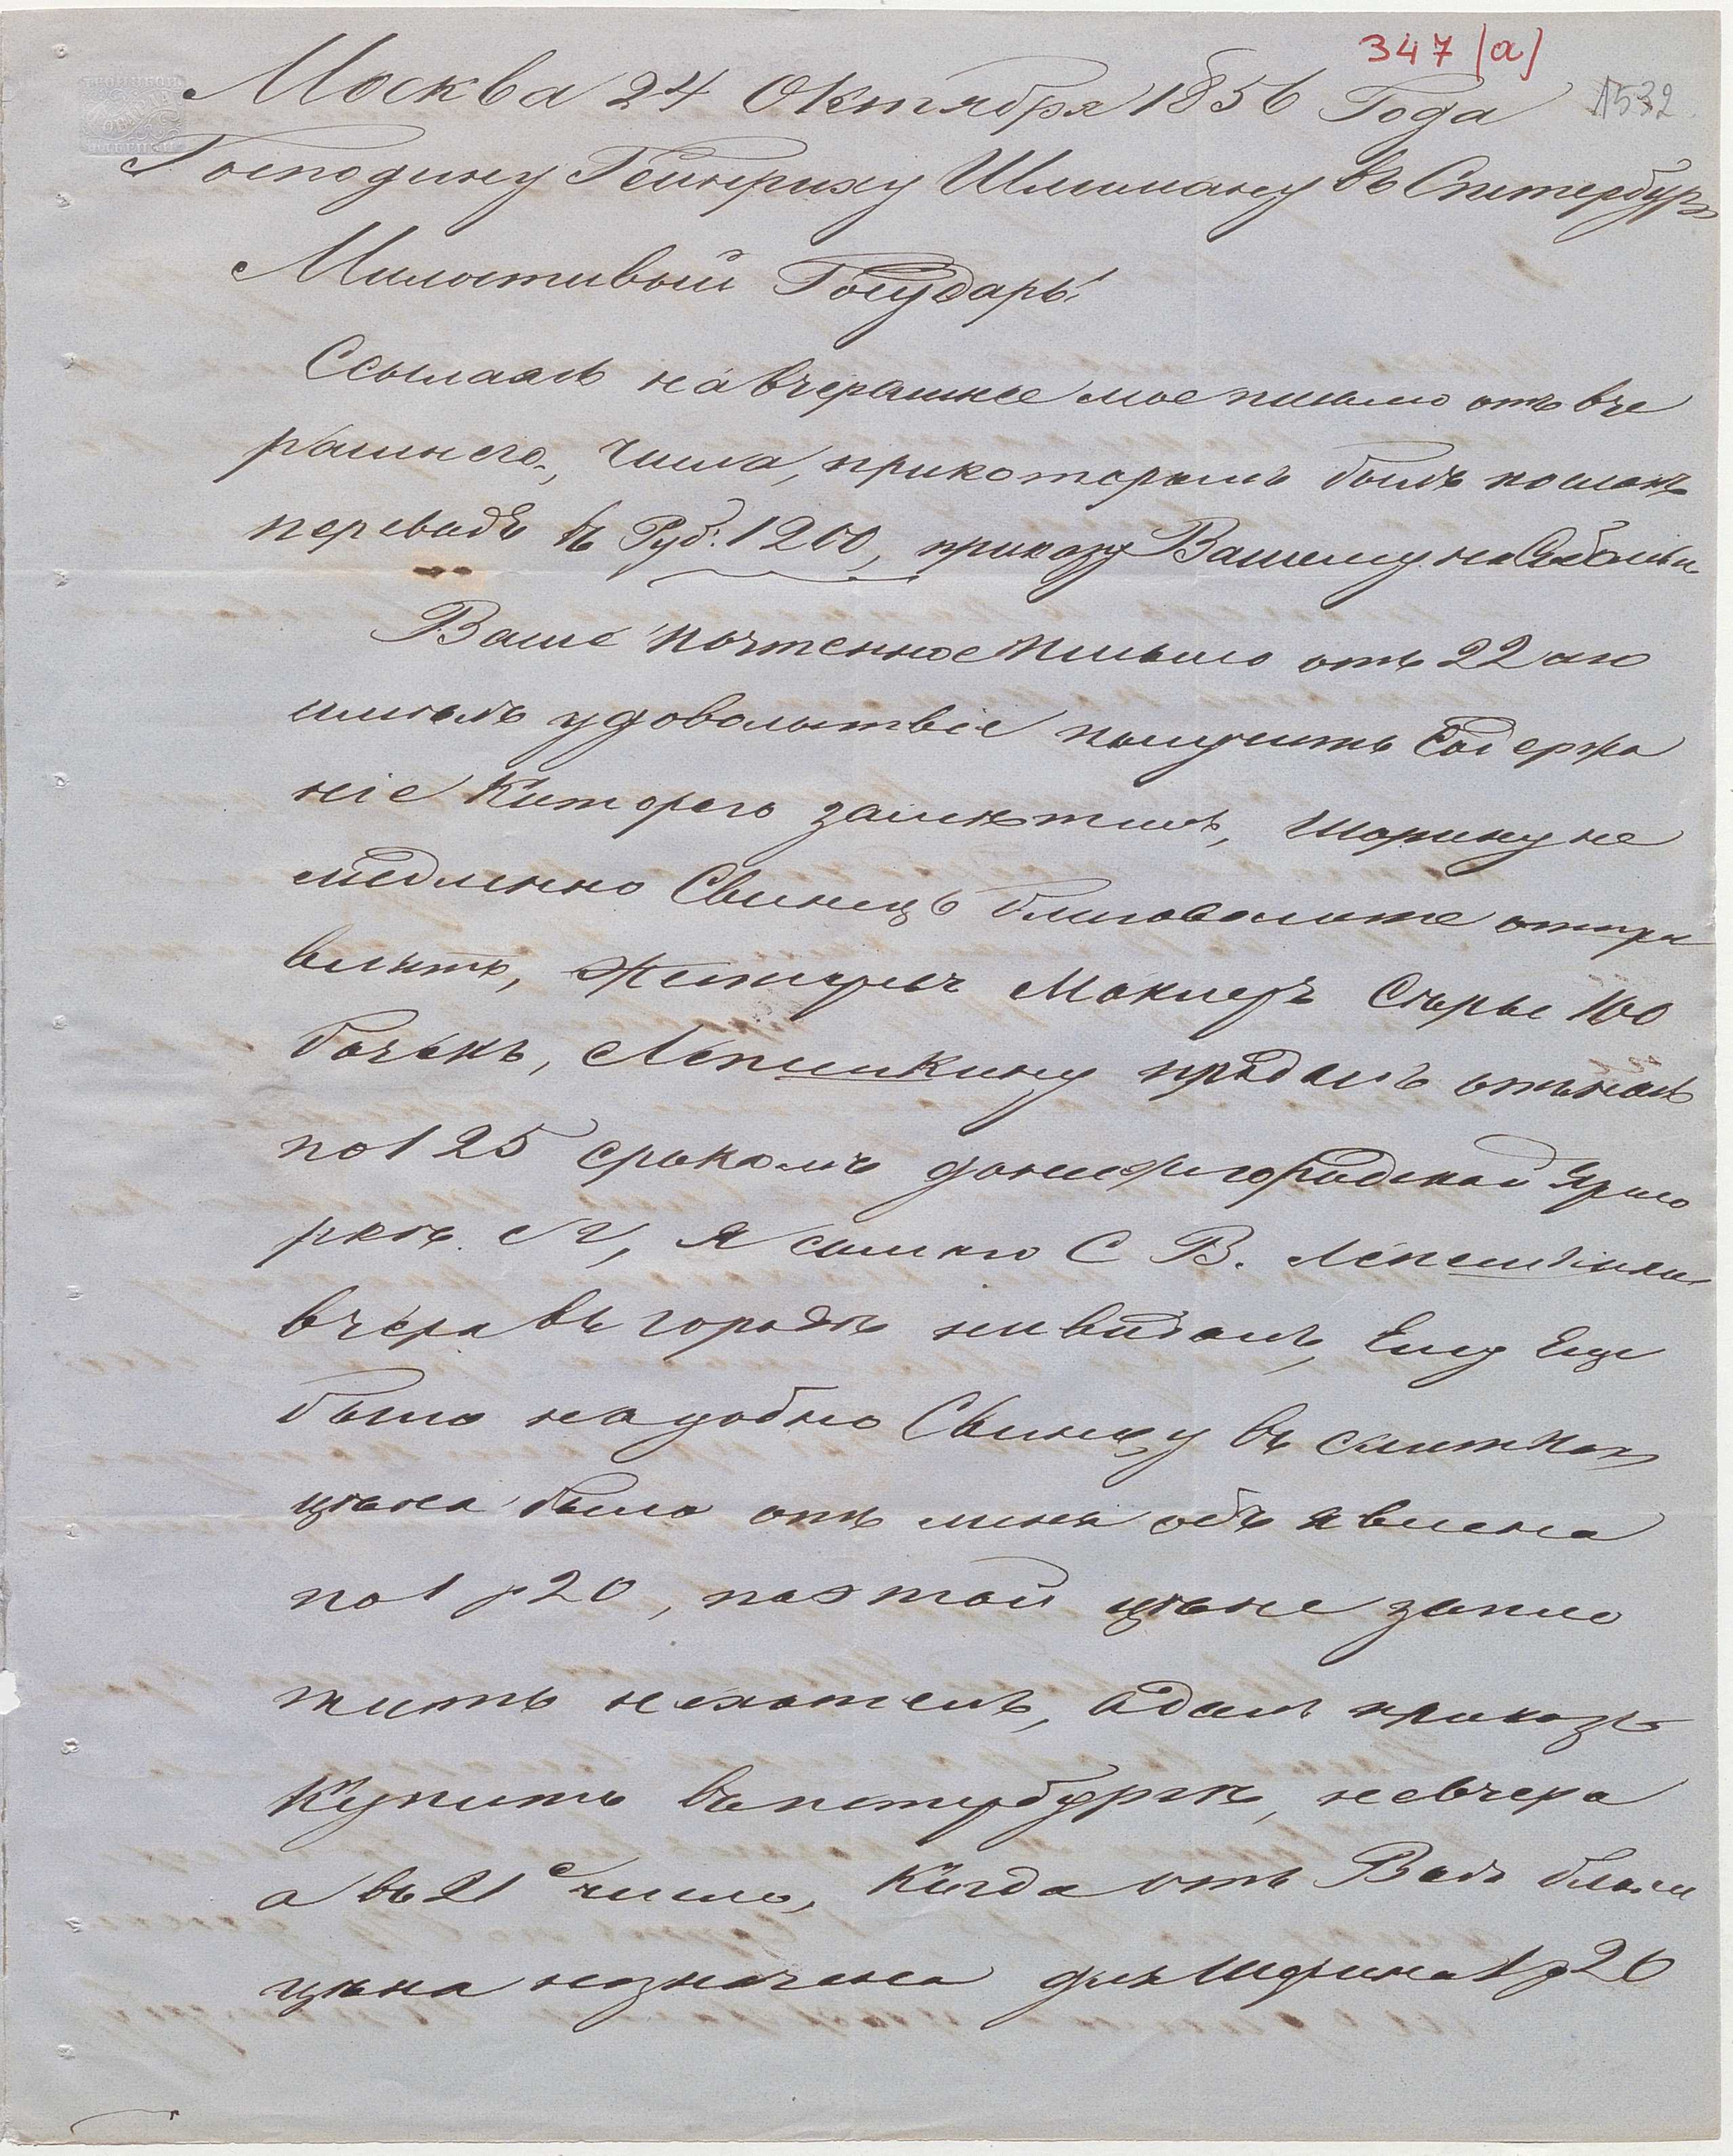 347 (a)
1532
Москва 24 Октября 1856 Года
Господину Гейнриху Шлиману въ Спитербург
Милостивый Государь!
Ссылаясь на вчерашнее мое письмо отъ вче
рашнего, числа, прикоторамъ былъ посланъ
переводъ въ Руб. 1200, приказу Вашему на
Ваше почтенное письмо отъ 22 аго
имелъ удовольствiе получить Содержа
нiе Которого заметилъ, Шорину не
медленно Свинецъ благоволите отпра
вить, Маклеръ Серы 100
бочекъ, Лепешкину продалъ
по 1 25 срокомъ донижгородской Ярмо
рке, я самаго С В. Лепешкина
вчера въ городе невидалъ, Ему Еще
было надобно Свинцу въ слитках
цена была отъ меня объявлена
по 1 р 20, поэтой цене запло
тить нехотелъ, адалъ приказъ
Купить въпетербурге, невчера
а въ 21 е число, Когда отъ Васъ была
цена назначена для Шорина 1 р 20